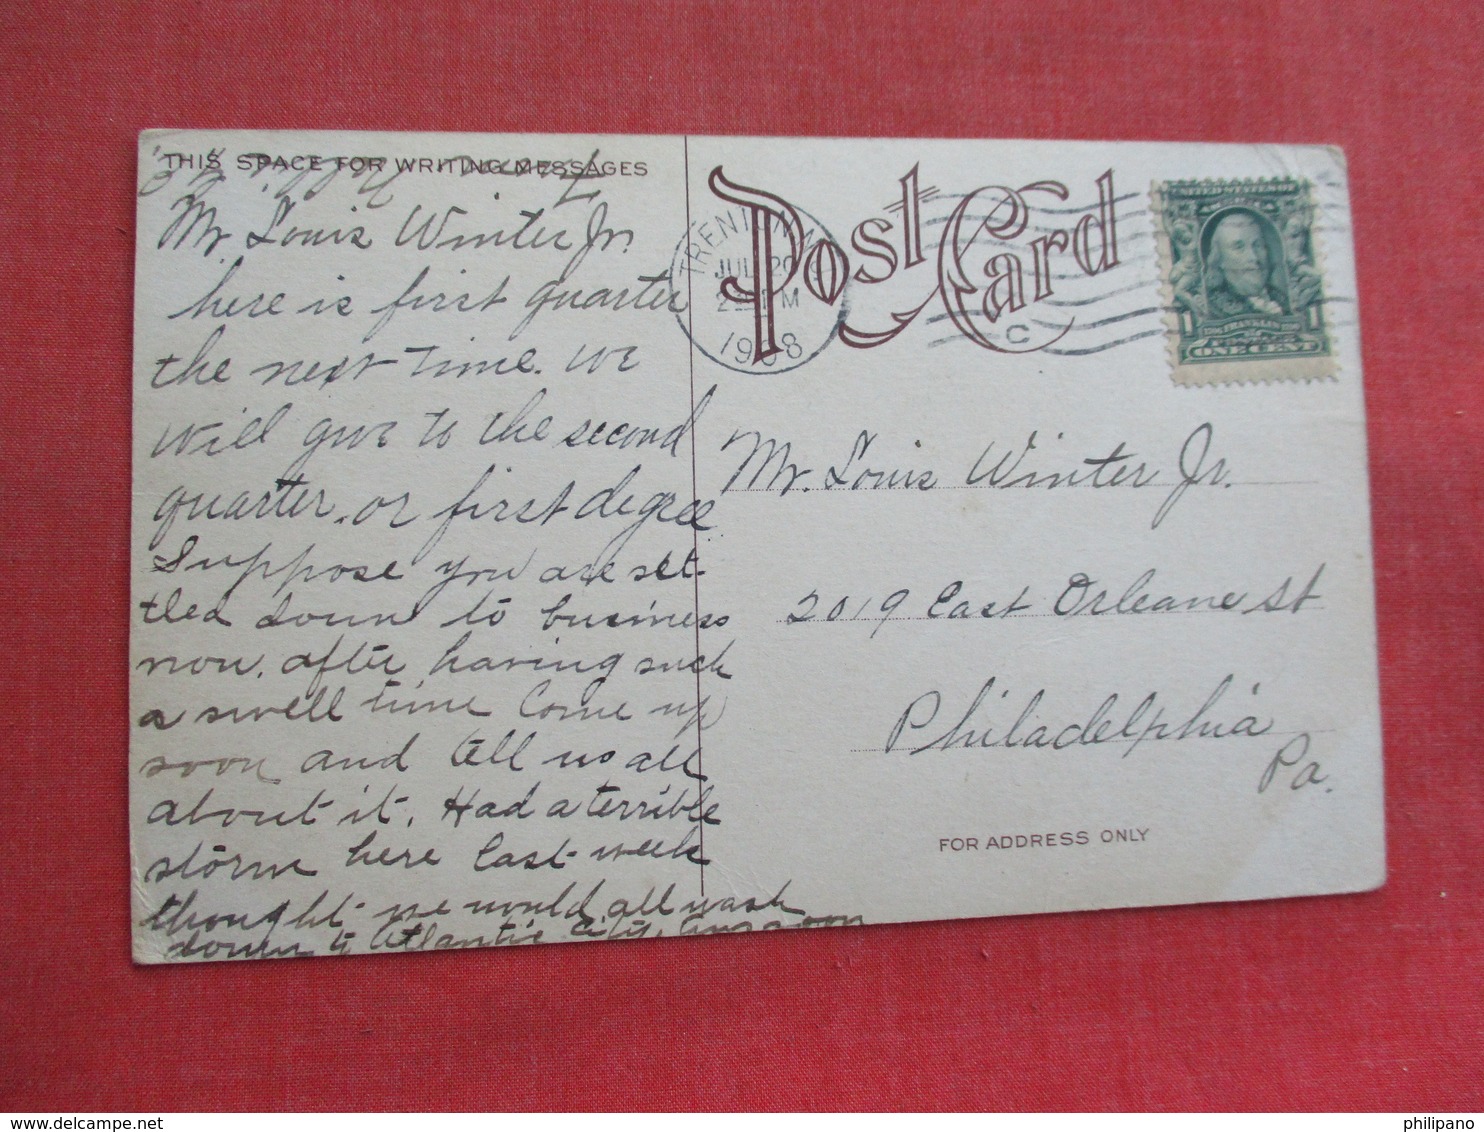 THIS SPACE FOR WRITING MESSAGES
Mr. Louis Winter Jr.
here is first quarter
the next time. we
will give to the second
quarter. or first degree
Suppose you are set-
tled down to business
now. after having such
a swell time Come up
soon and tell us all
about it. Had a terrible
storm here last week
thought we would all wash
down to Atlantic City.
Post Card
TRENTON, N.J.
JUL 20
2 PM
1908
C
UNITED STATES OF
AMERICA
FRANKLIN
1 1
ONE CENT
Mr. Louis Winter Jr.
2019 East Orleane St
Philadelphia
Pa.
FOR ADDRESS ONLY
©delcampe.net
philipano